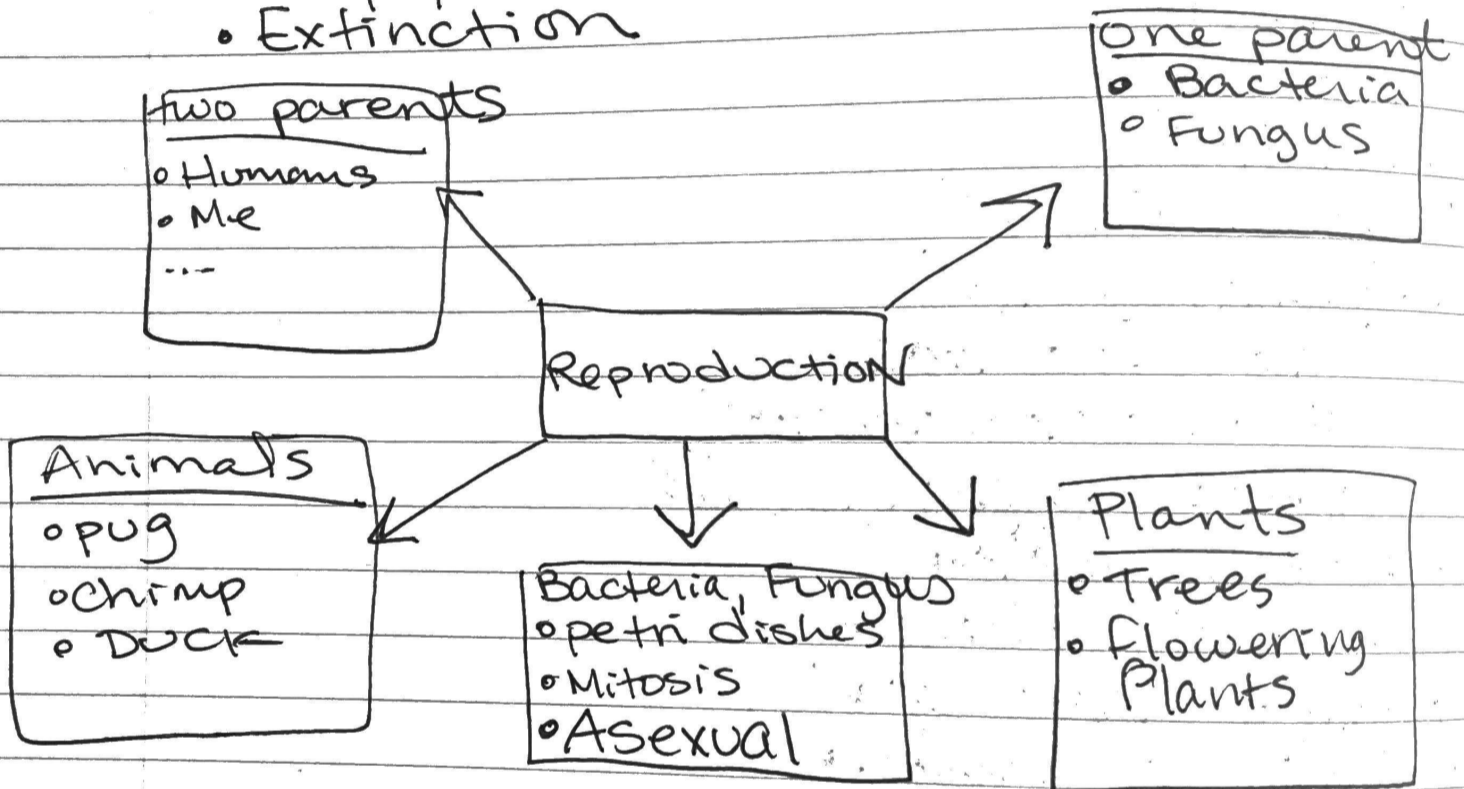 • Extinction
two parents
• Humans
• Me
...
one parent
• Bacteria
• Fungus
Reproduction
Animals
• pug
• chimp
• Duck
Bacteria, Fungus
• petri dishes
• Mitosis
• Asexual
Plants
• Trees
• flowering
Plants